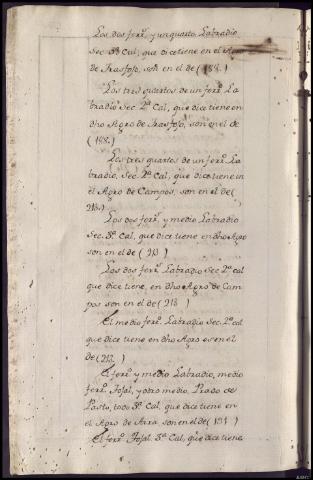 Los dos ferr.^s y un quarto Labradio
Sec. 3ª Cal, que dice tiene en el Agro
de Trasfojo, son en el de (188.)
Los tres quartos de un ferr.^o La
bradio Sec. 2ª Cal, que dice tiene en
dho Agro de Trasfojo, son en el de
(188.)
Los tres quartos de un ferr.^o La
bradio, Sec. 2ª Cal, que dice tiene in
el Agro de Campos, son en el de (
213.)
Los dos ferr.^s y medio Labradio
Sec. 3ª Cal, que dice tiene en dho Agro
son en el de (213)
Los dos ferr.^s Labradio Sec. 2ª cal
que dice tiene, en dho Agro de Cam
pos son en el de (213)
El medio ferr.^o Labradio Sec. 2ª cal
que dice tiene en dho Agro es en el
de (213.)
El ferr.^o y medio Labradio, medio
ferr.^o Tojal, y otro medio, Prado de
Pasto, todo 3ª Cal, que dice tiene en
el Agro de Arra, son en el de (131)
El ferr.^o Tojal 3ª Cal, que dice tiene